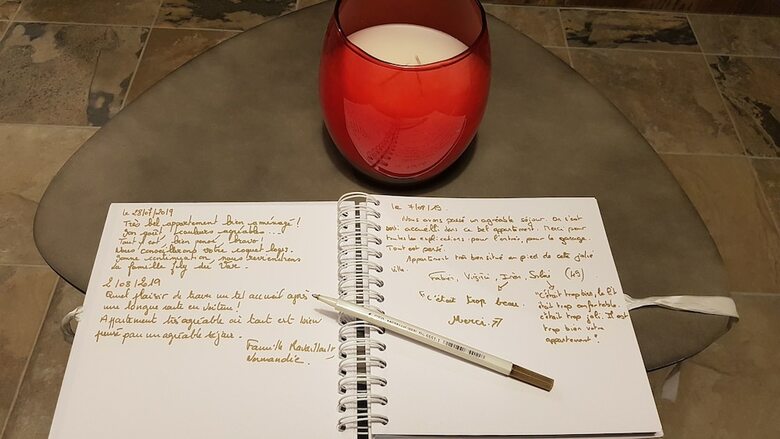 Le 28/07/2019
Très bel appartement bien aménagé !
Bon goût ! couleurs agréables...
Tout y est bien pensé, bravo !
Nous conseillerons votre coquet logis.
Bonne continuation, nous reviendrons
la famille du Var.
2/08/2019
Quel plaisir de trouver un tel accueil après
une longue route en voiture !
Appartement très agréable où tout est bien
pensé pour un agréable séjour.
Famille
Normandie.
Le 7/08/19
Nous avons passé un agréable séjour. On s'est
accueillis dans ce bel appartement. Merci pour
toutes les explications pour l'entrée, pour le garage.
Tout est pensé.
Appartement très bien situé au pied de cette jolie
ville.
Fabien, Virginie, Inès, (49)
C'était trop beau.
Merci.
"C'était trop bien, le lit
était trop confortable
c'était trop joli. Il est
trop bien votre
appartement".